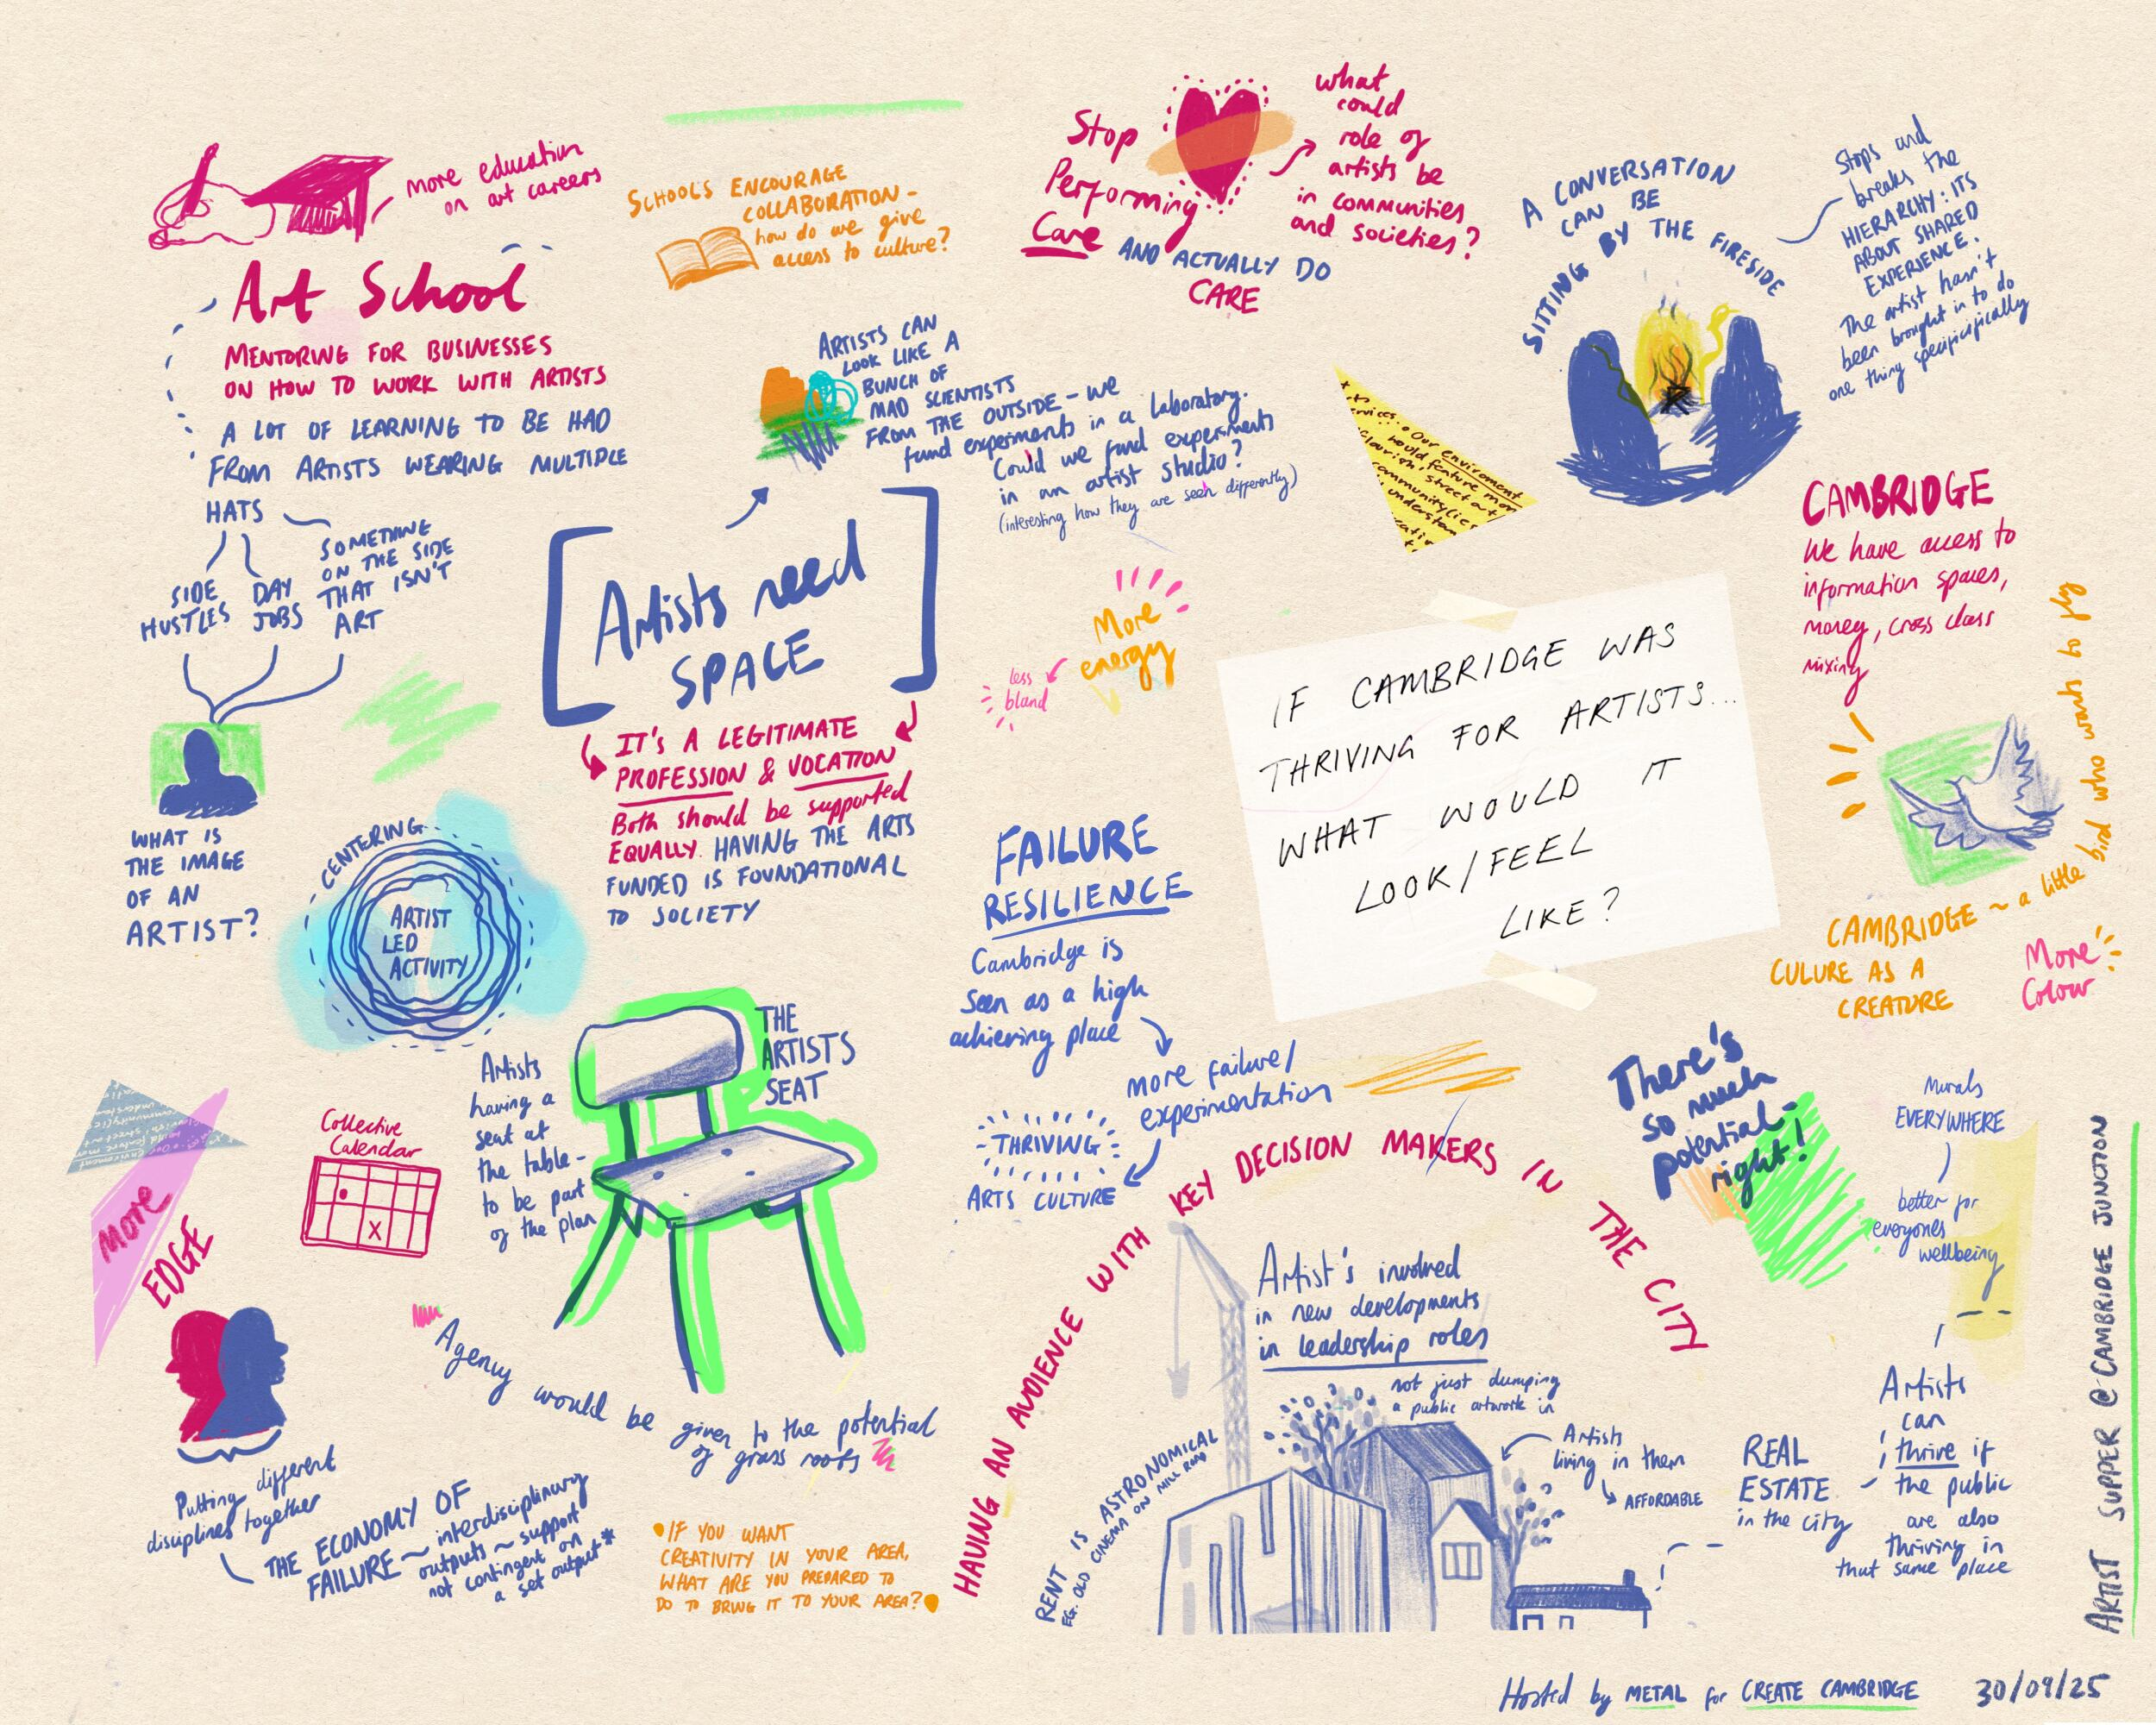 more education
on art careers
Art School
MENTORING FOR BUSINESSES
ON HOW TO WORK WITH ARTISTS
A LOT OF LEARNING TO BE HAD
FROM ARTISTS WEARING MULTIPLE
HATS
SIDE
HUSTLES
DAY
JOBS
SOMETHING
ON THE SIDE
THAT ISN'T
ART
WHAT IS
THE IMAGE
OF AN
ARTIST?
SCHOOL'S ENCOURAGE
COLLABORATION -
how do we give
access to culture?
ARTISTS CAN
LOOK LIKE A
BUNCH OF
MAD SCIENTISTS
FROM THE OUTSIDE - we
fund experiments in a laboratory.
Could we fund experiments
in an artist studio?
(interesting how they are seen differently)
[Artists need
SPACE]
IT'S A LEGITIMATE
PROFESSION & VOCATION
Both should be supported
EQUALLY. HAVING THE ARTS
FUNDED IS FOUNDATIONAL
TO SOCIETY
Stop
Performing
Care AND ACTUALLY DO
CARE
what
could
role of
artists be
in communities
and societies?
A CONVERSATION
CAN BE
SITTING BY THE FIRESIDE
Stops and
breaks the
HIERARCHY: ITS
ABOUT SHARED
EXPERIENCE.
The artist hasn't
been brought in to do
one thing specificifically
Our enviroment
would feature mor
flourish, street art
community(ies
understan
CAMBRIDGE
We have access to
information spaces,
money, cross class
mixing
More
energy
less
bland
IF CAMBRIDGE WAS
THRIVING FOR ARTISTS...
WHAT WOULD IT
LOOK/FEEL
LIKE?
CAMBRIDGE ~ a little bird who wants to fly
CULURE AS A
CREATURE
More
Colour
CENTERING
ARTIST
LED
ACTIVITY
THE
ARTIST'S
SEAT
Artists
having a
seat at
the table -
to be part
of the plan
Collective
Calendar
X
MORE
EDGE
Putting different
disciplines together
THE ECONOMY OF
FAILURE ~ interdisciplinary
outputs ~ support
not contingent on
a set output*
Agency would be given to the potential
of grass roots
IF YOU WANT
CREATIVITY IN YOUR AREA,
WHAT ARE YOU PREPARED TO
DO TO BRING IT TO YOUR AREA?
FAILURE
RESILIENCE
Cambridge is
seen as a high
achieving place
more failure/
experimentation
THRIVING
ARTS CULTURE
HAVING AN AUDIENCE WITH KEY DECISION MAKERS IN THE CITY
Artist's involved
in new developments
in leadership roles
not just dumping
a public artwork in
Artists
living in them
AFFORDABLE
RENT IS ASTRONOMICAL
EG. OLD CINEMA ON MILL ROAD
There's
so much
potential -
right!
Murals
EVERYWHERE
better for
everyones
wellbeing
REAL
ESTATE
in the city
Artists
can
thrive if
the public
are also
thriving in
that same place
ARTIST SUPPER @ CAMBRIDGE JUNCTION
Hosted by METAL for CREATE CAMBRIDGE 30/09/25